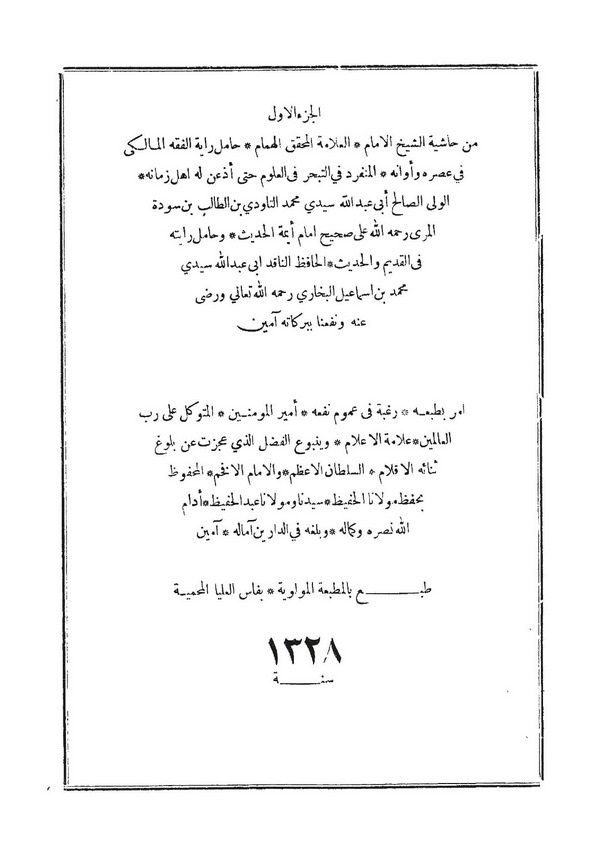 الجزء الاول
من حاشية الشيخ الامام * العلامة المحقق الهمام * حامل راية الفقه المالكى
في عصره وأوانه * المنفرد في التبحر فى العلوم حتى أذعن له اهل زمانه *
الولى الصالح أبى عبد الله سيدي محمد التاودي بن الطالب بن سودة
المرى رحمه الله على صحيح امام أيمة الحديث * وحامل رايته
فى القديم والحديث * الحافظ الناقد ابى عبد الله سيدي
محمد بن اسماعيل البخاري رحمه الله تعالي ورضى
عنه ونفعنا ببركاته آمين
امر بطبعه * رغبة فى عموم نفعه * أمير المومنين * المتوكل على رب
العالمين * علامة الاعلام * وينبوع الفضل الذي عجزت عن بلوغ
ثنائه الاقلام * السلطان الاعظم * والامام الافخم * المحفوظ
بحفظ مولانا الحفيظ * سيدنا ومولانا عبد الحفيظ * أدام
الله نصره وكماله * وبلغه في الدارين آماله * آمين
طبع بالمطبعة المولوية * بفاس العليا المحمية
١٣٢٨
سنة